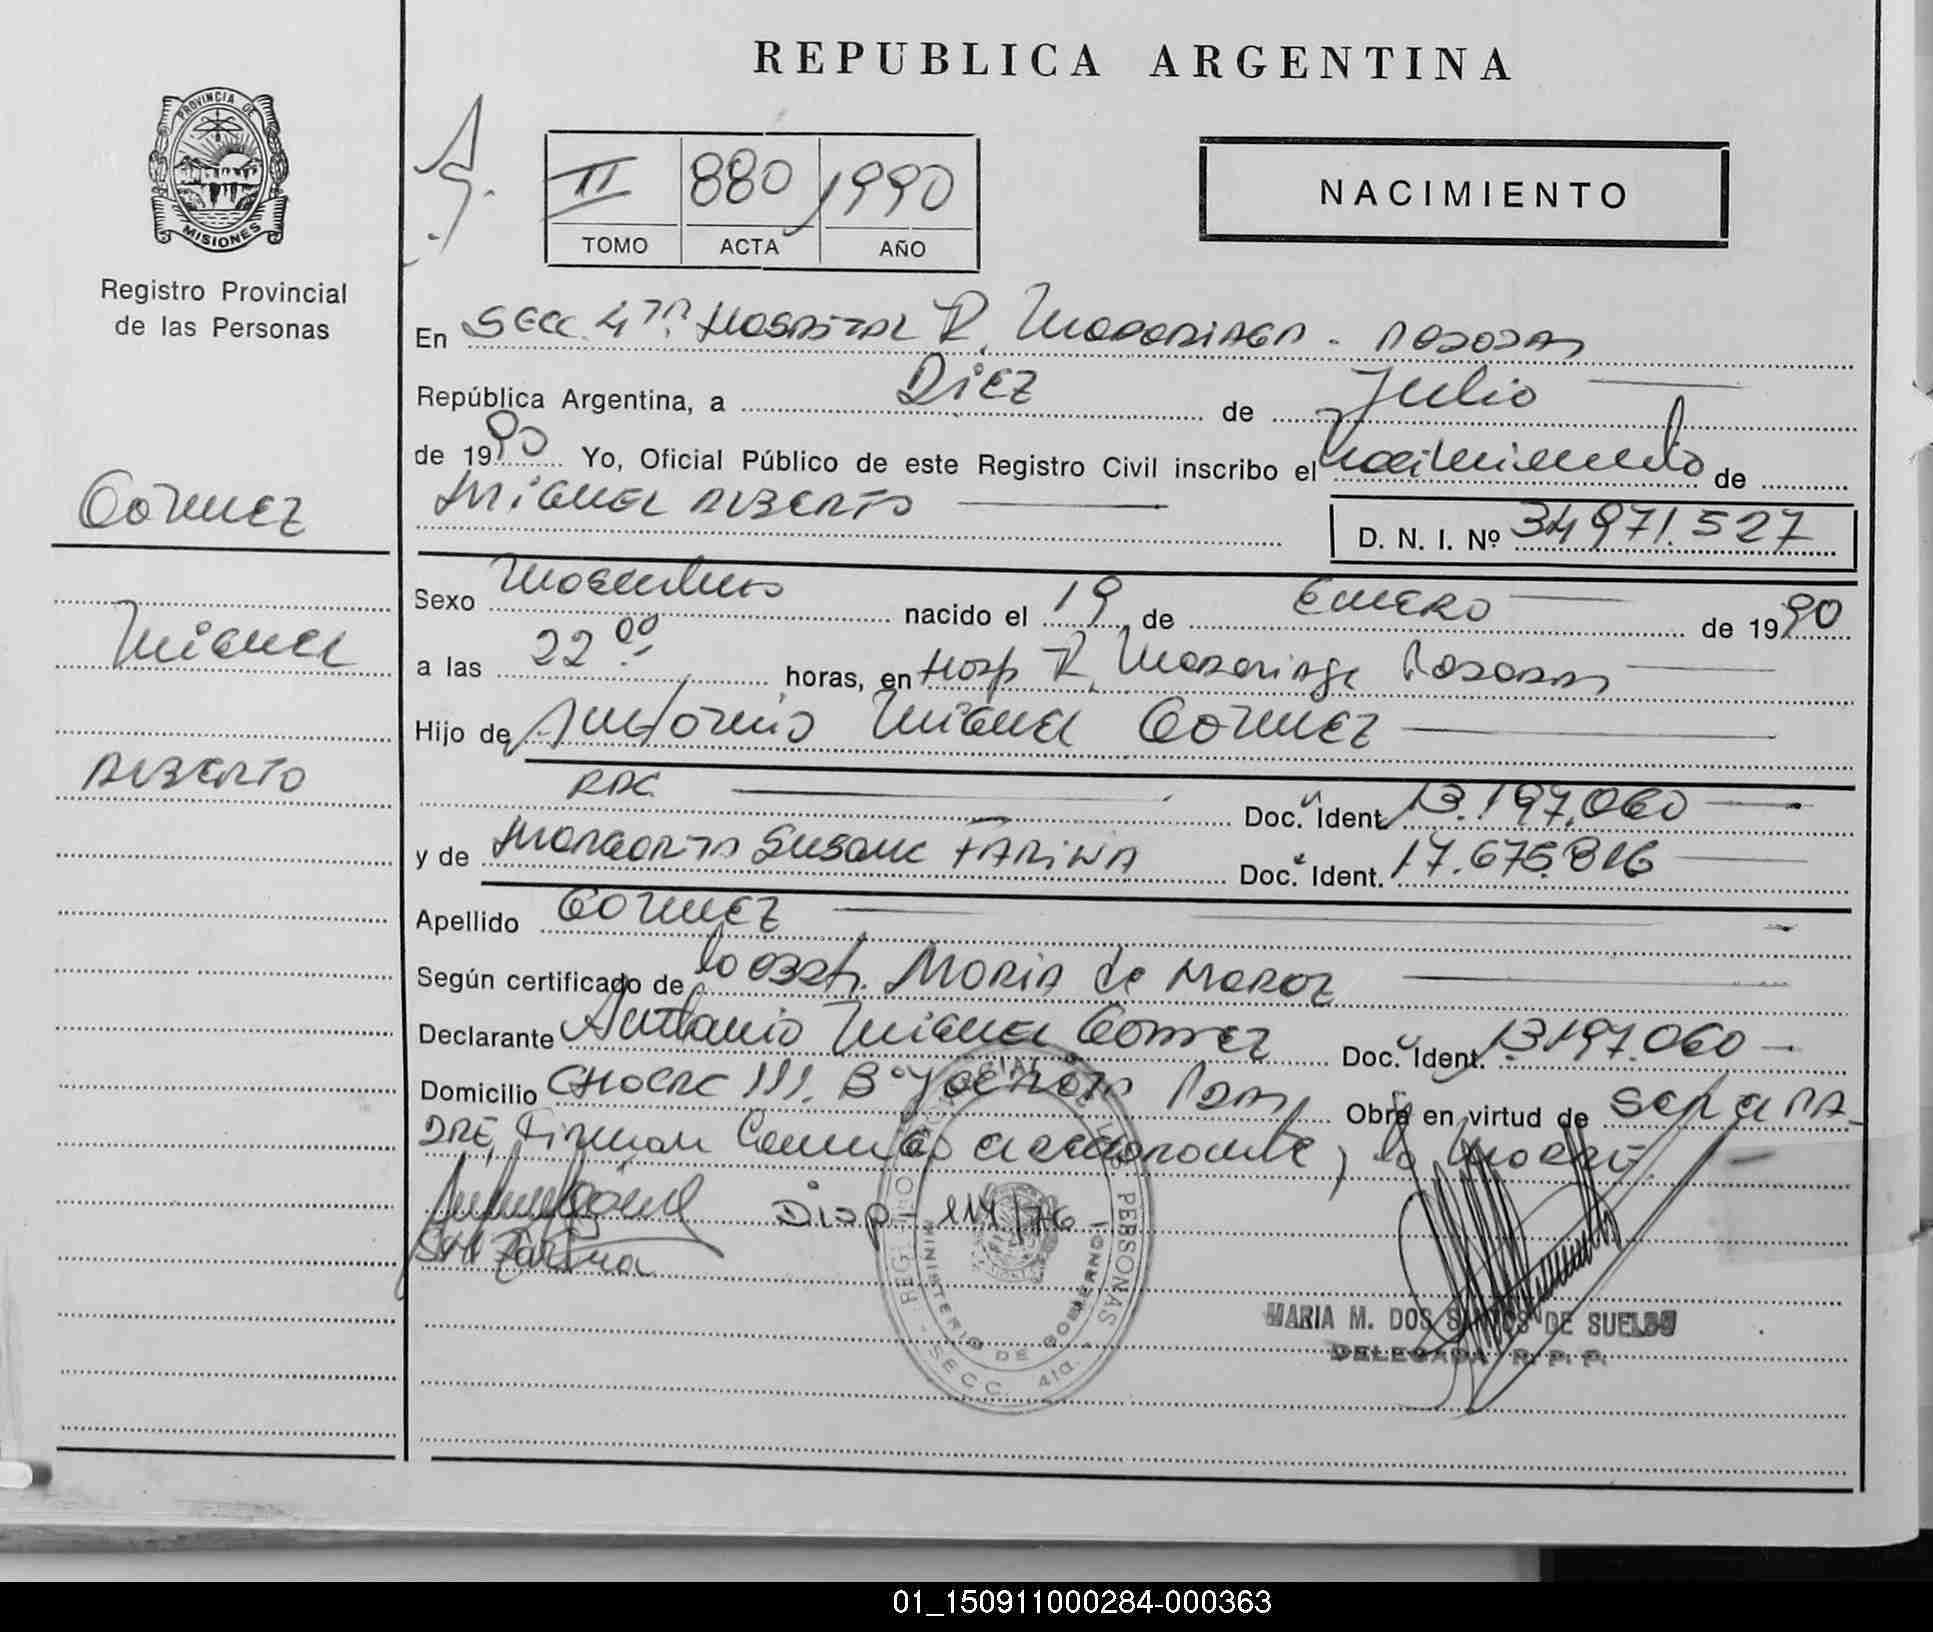 REPUBLICA ARGENTINA
PROVINCIA DE
MISIONES
Registro Provincial
de las Personas
II 880 1990
TOMO ACTA AÑO
NACIMIENTO
En Secc. 4ta. Hospital R. Madariaga - Posadas
República Argentina, a Diez de Julio
de 1990 Yo, Oficial Público de este Registro Civil inscribo el Nacimiento de
Miguel Alberto D. N. I. Nº 34971.527
Gómez
Miguel
Alberto
Sexo Masculino nacido el 19 de Enero de 1990
a las 22 00 horas, en Hosp R. Madariaga Posadas
Hijo de Antonio Miguel Gómez
Doc. Ident. 13.197.060
y de Margarita Susana FARIÑA Doc. Ident. 17.675.816
Apellido Gómez
Según certificado de la obst. María de
Declarante Antonio Miguel Gómez Doc. Ident. 13.197.060
Domicilio Chacra 111. Bº Pdas Obra en virtud de ser el PA-
DRE, Firman conmigo el declarante y la Madre.
Disp. 114/76
S M Fariña
REGISTRO PROVINCIAL DE LAS PERSONAS
MINISTERIO DE GOBIERNO
SECC. 4ta.
MARIA M. DOS SANTOS DE SUELDO
DELEGADA R. P. P.
01_150911000284-000363